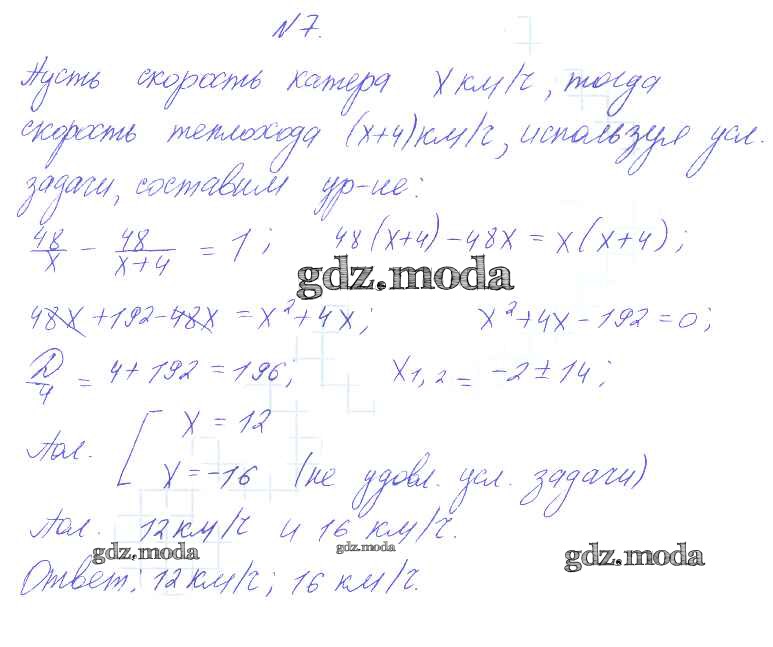 N 7.
Пусть скорость катера x км/ч, тогда
скорость теплохода (x+4) км/ч, используя усл.
задачи, составим ур-ие:
48/x - 48/(x+4) = 1; 48(x+4)-48x = x(x+4);
gdz.moda
48x+192-48x = x²+4x; x²+4x-192=0;
D/4 = 4+192=196; x1,2 = -2±14;
Пол. [ x = 12
x = -16 (не удовл. усл. задачи)
Пол. 12 км/ч и 16 км/ч.
gdz.moda gdz.moda gdz.moda
Ответ: 12 км/ч; 16 км/ч.